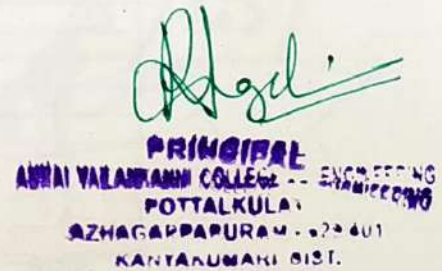 PRINCIPAL
ANNAI VAILANKANNI COLLEGE ENGINEERING
POTTALKULAM
AZHAGAPPAPURAM - 629 401
KANYAKUMARI DIST.